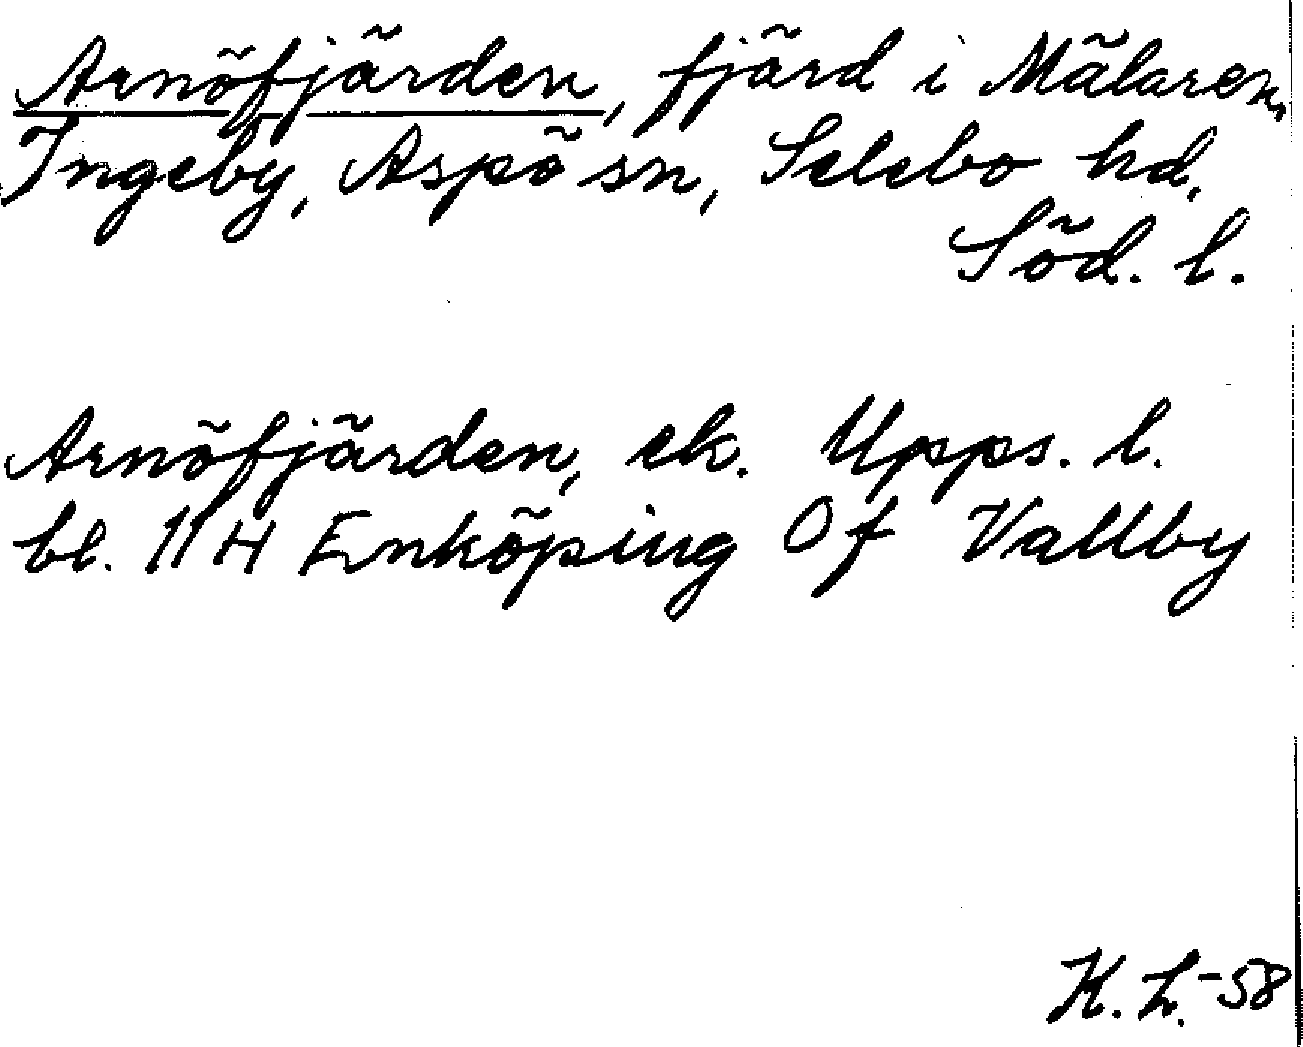 Arnöfjärden, fjärd i Mälaren,
Ingeby, Aspö sn, Selebo hd,
Söd. l.
Arnöfjärden, ek. Upps. l.
bl. 11 H Enköping Of Vallby
K. L. -58